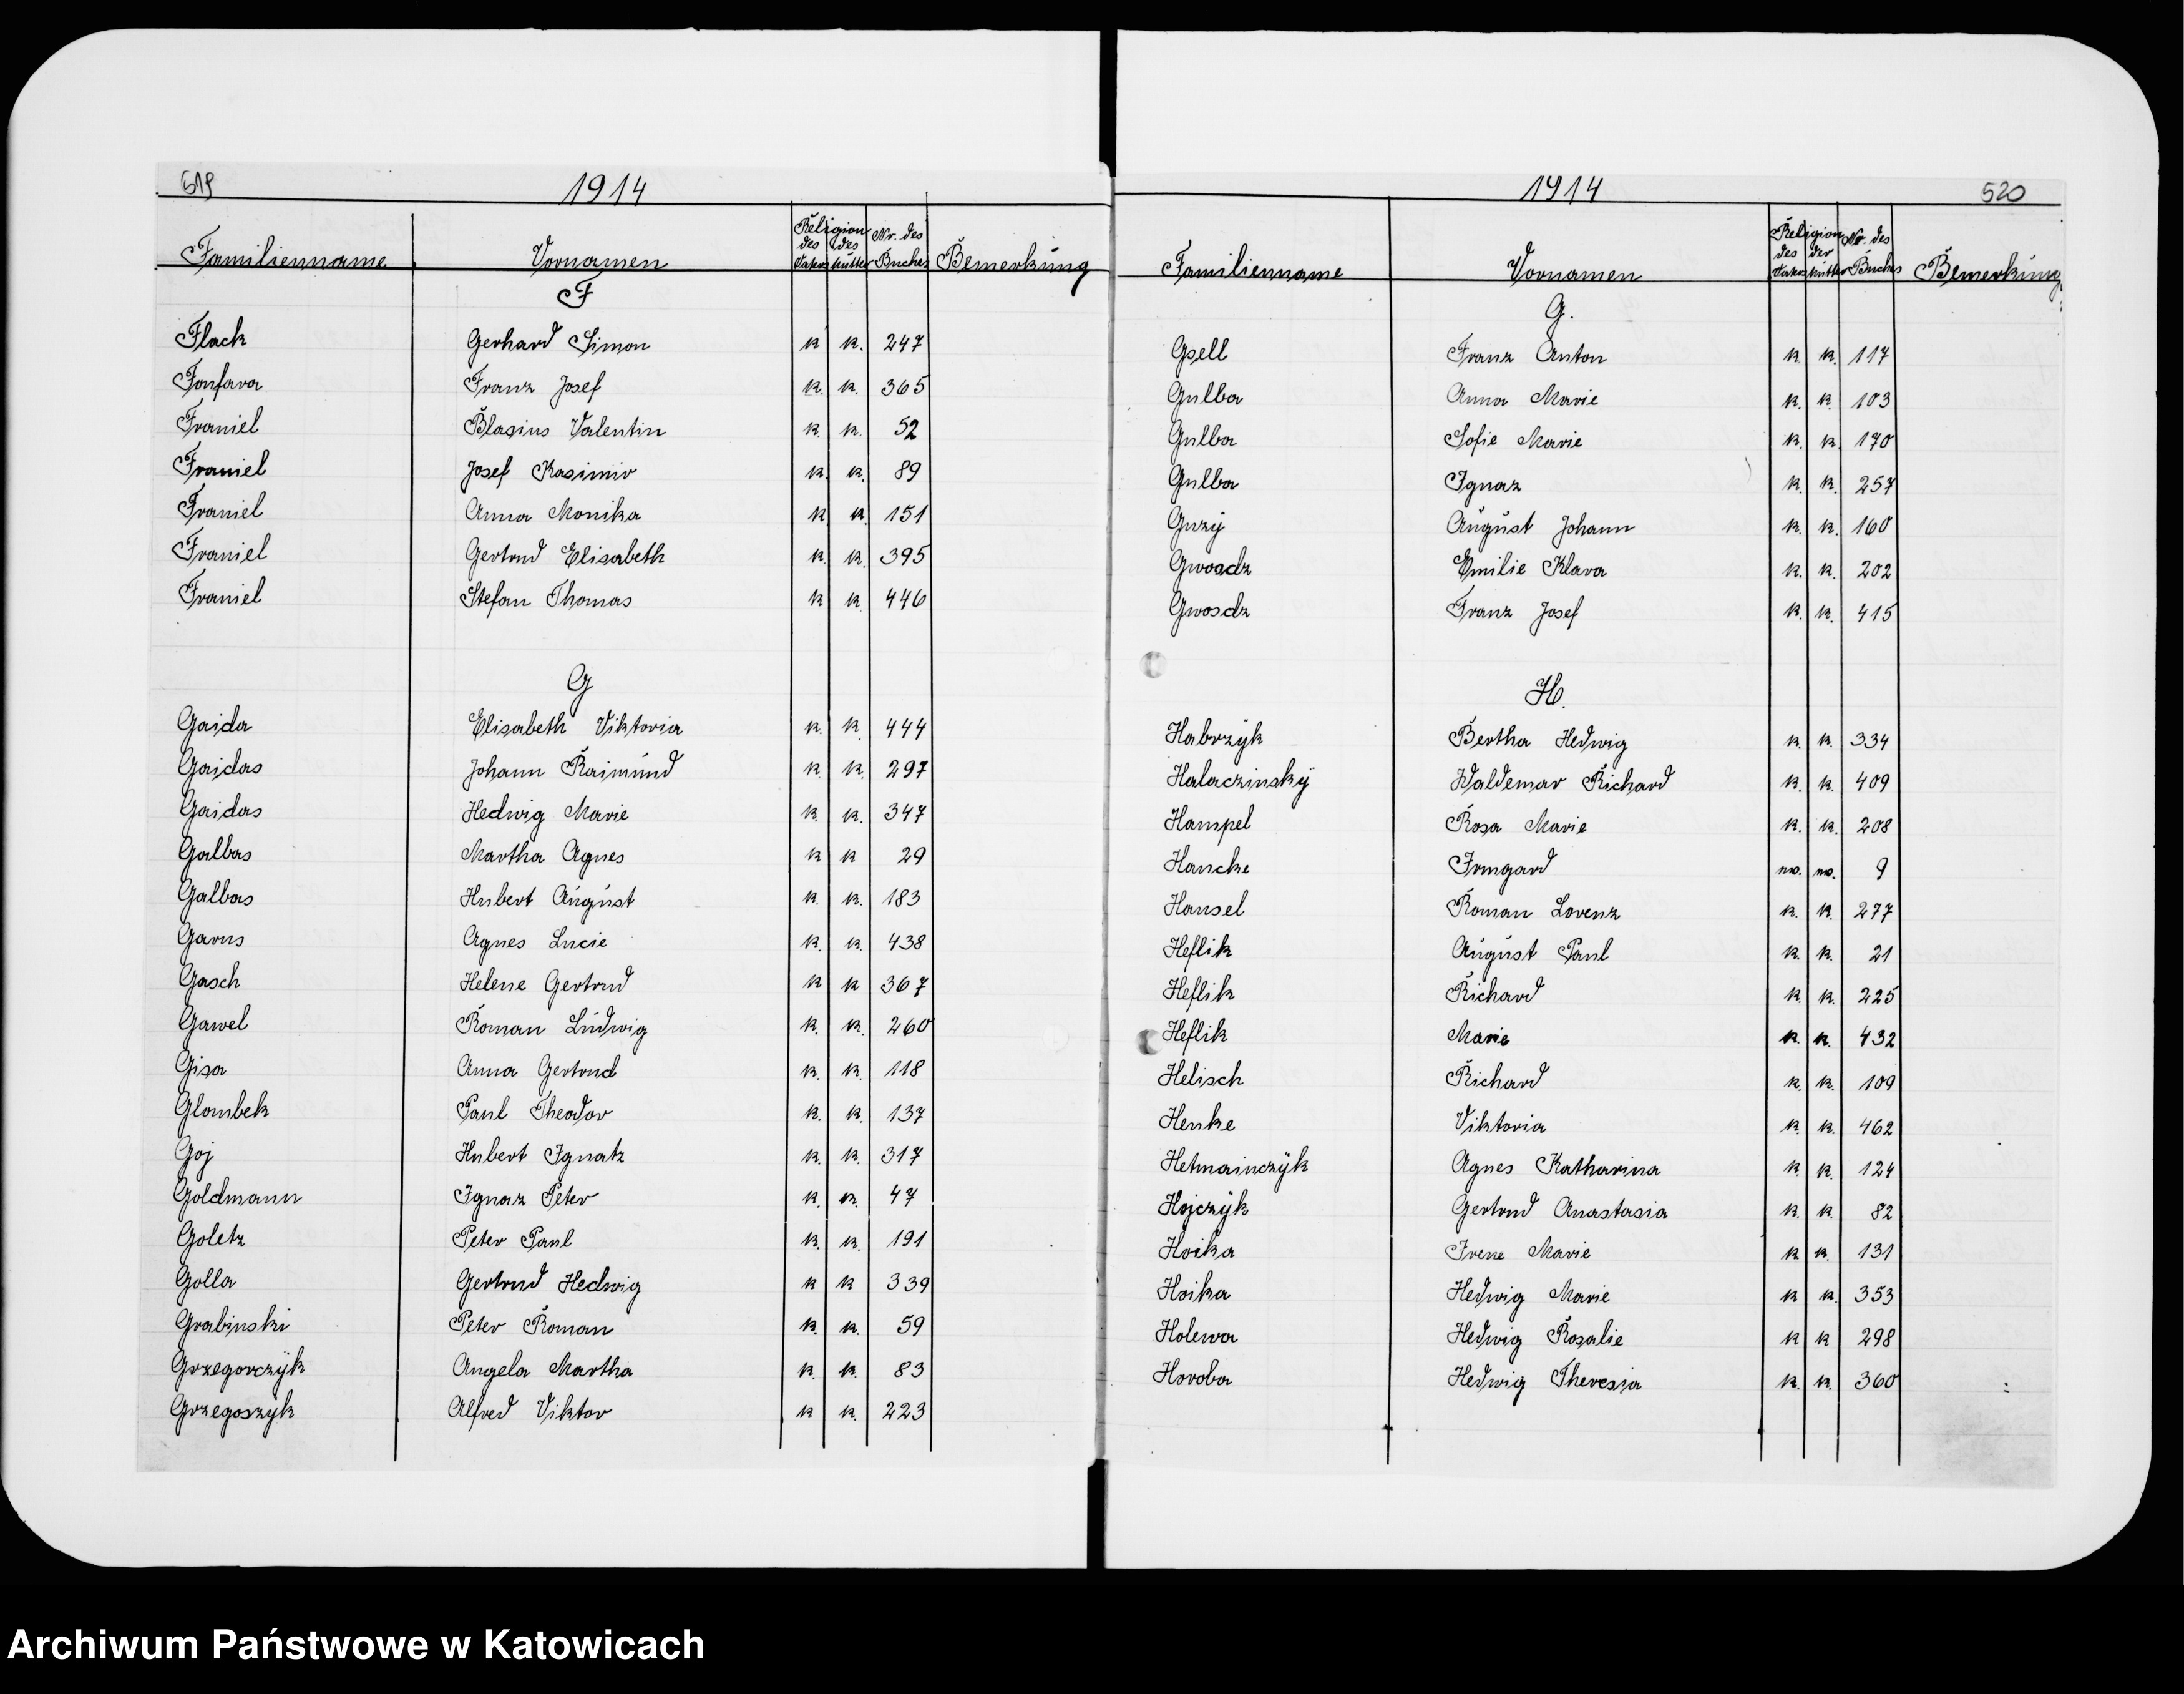 519 1914
Familienname Vornamen Religion des Vaters des Mutter Nr. des Buches Bemerkung
F
Flack Gerhard Simon k k. 247
Fonfara Franz Josef k. k. 365
Franiel Blasius Valentin k. k. 52
Franiel Josef Kasimir k. k. 89
Franiel Anna Monika k k. 151
Franiel Gertrud Elisabeth k. k. 395
Franiel Stefan Thomas k k. 446
G
Gaida Elisabeth Viktoria k. k. 444
Gaidas Johann Raimund k. k. 297
Gaidas Hedwig Marie k. k. 347
Galbas Martha Agnes k k 29
Galbas Hubert August k. k. 183
Garus Agnes Lucie k. k. 438
Gasch Helene Gertrud k k 367
Gawel Roman Ludwig k. k. 260
Gisa Anna Gertrud k. k. 118
Glombek Paul Theodor k. k. 137
Goj Hubert Ignatz k. k. 317
Goldmann Ignaz Peter k. k. 47
Goletz Peter Paul k. k. 191
Golla Gertrud Hedwig k k 339
Grabinski Peter Roman k. k. 59
Grzegorczyk Angela Martha k. k. 83
Grzegoszyk Alfred Viktor k k. 223
1914 520
Familienname Vornamen Religion des Vaters der Mutter Nr. des Buches Bemerkung
G.
Gsell Franz Anton k. k. 117
Gulba Anna Marie k. k. 103
Gulba Sofie Marie k. k. 170
Gulba Ignaz k. k. 257
Guzy August Johann k. k. 160
Gwosdz Emilie Klara k. k. 202
Gwosdz Franz Josef k. k. 415
H.
Habrzyk Bertha Hedwig k. k. 334
Halaczinsky Waldemar Richard k. k. 409
Hampel Rosa Marie k. k. 208
Hancke Irmgard 9
Hansel Roman Lorenz k. k. 277
Heflik August Paul k. k. 21
Heflik Richard k. k. 225
Heflik Marie k. k. 432
Helisch Richard k. k. 109
Henke Viktoria k. k. 462
Hetmainczyk Agnes Katharina k. k. 124
Hojczyk Gertrud Anastasia k. k. 82
Hoika Irene Marie k k. 131
Hoika Hedwig Marie k k. 353
Holewa Hedwig Rosalie k k 298
Horoba Hedwig Theresia k. k. 360
Archiwum Państwowe w Katowicach